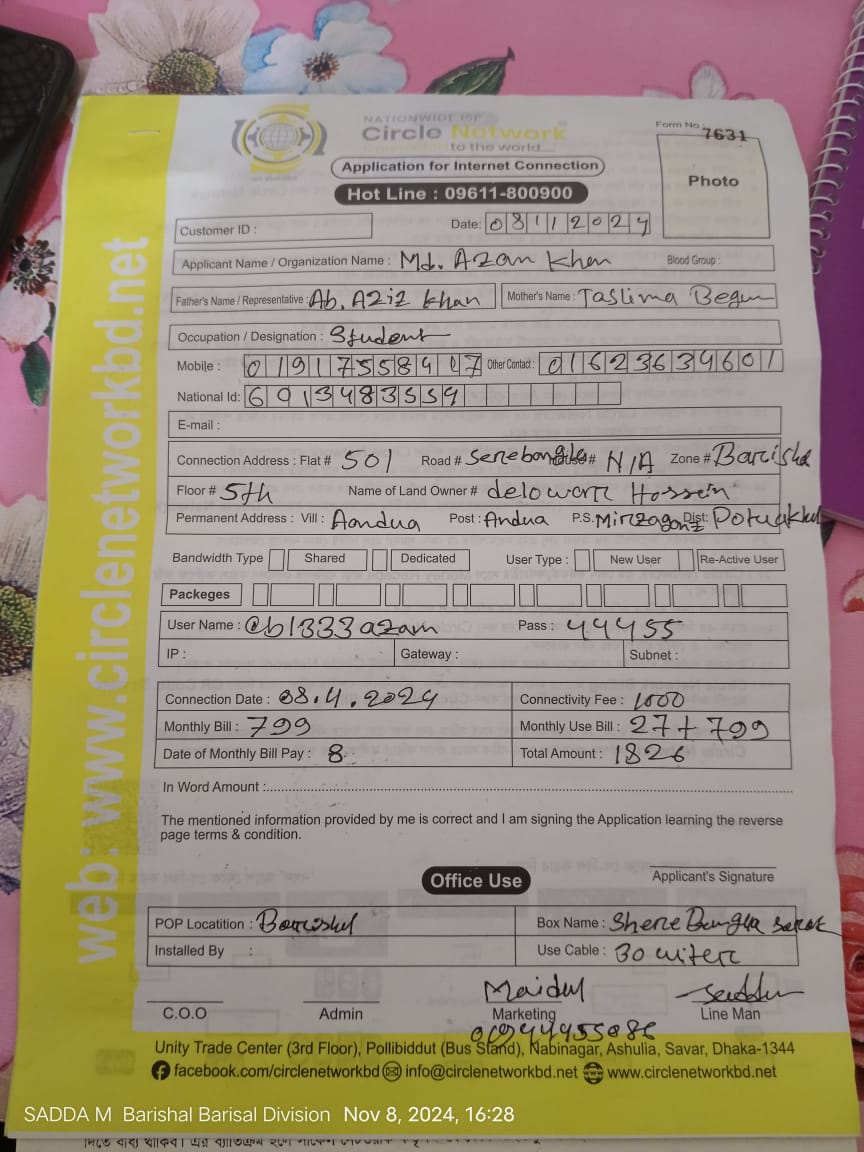 NATIONWIDE ISP
Circle Network
Connecting to the world....
Form No. 7631
Application for Internet Connection
Photo
Hot Line : 09611-800900
Customer ID :
Date: 08112024
Applicant Name / Organization Name : Md. Azan Khan Blood Group :
Father's Name / Representative : Ab. Aziz Khan Mother's Name : Taslima Begum
Occupation / Designation : Student
Mobile : Other Contact : 01623634601
National Id: 6913483559
E-mail :
Connection Address : Flat # 501 Road # Sherebangla House # N/A Zone # Barishal
Floor # 5th Name of Land Owner # delowarr Hossein
Permanent Address : Vill : Aandua Post : Andua P.S. Mirzagonz Dist: Potuakhali
Bandwidth Type Shared Dedicated User Type : New User Re-Active User
Packeges
User Name : @b1333azam Pass : 44455
IP : Gateway : Subnet :
Connection Date : 08.4.2024 Connectivity Fee : 1000
Monthly Bill : 799 Monthly Use Bill : 27+799
Date of Monthly Bill Pay : 8 Total Amount : 1826
In Word Amount :
The mentioned information provided by me is correct and I am signing the Application learning the reverse
page terms & condition.
Applicant's Signature
Office Use
POP Locatition : Barrishal Box Name : Shere Bangla Sarok
Installed By : Use Cable : 30 miterr
Maidul
C.O.O Admin Marketing Line Man
Unity Trade Center (3rd Floor), Pollibiddut (Bus Stand), Nabinagar, Ashulia, Savar, Dhaka-1344
facebook.com/circlenetworkbd info@circlenetworkbd.net www.circlenetworkbd.net
web: www.circlenetworkbd.net
SADDA M Barishal Barisal Division Nov 8, 2024, 16:28